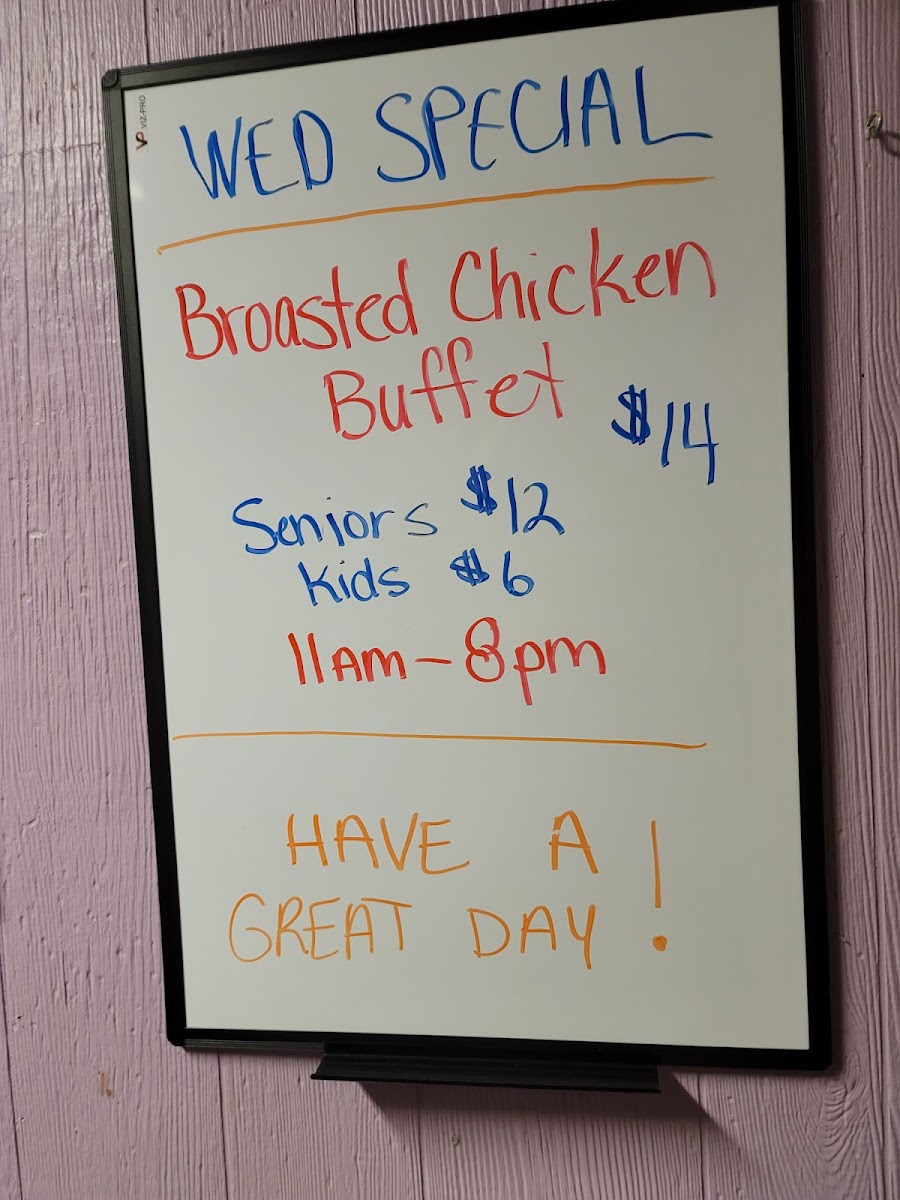 VP VIZ-PRO
WED SPECIAL
Broasted Chicken
Buffet
$14
Seniors $12
Kids $6
11AM-8pm
HAVE A
GREAT DAY!